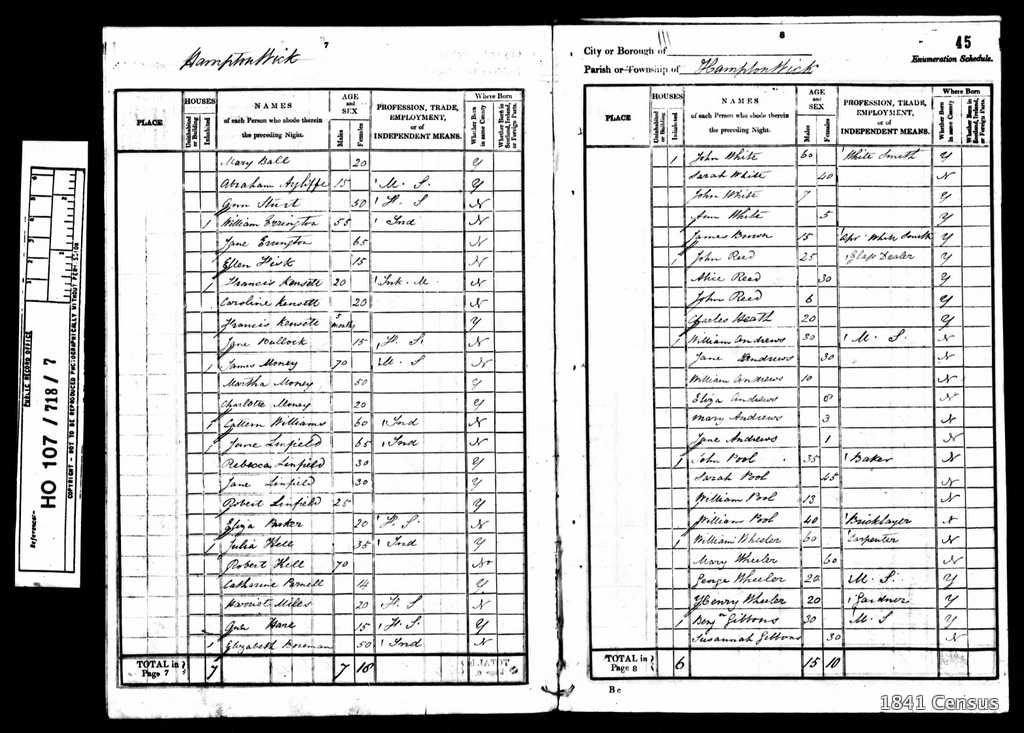 7
Hampton Wick
PLACE HOUSES NAMES AGE and SEX PROFESSION, TRADE, EMPLOYMENT, or of INDEPENDENT MEANS. Where Born
Uninhabited or Building Inhabited of each Person who abode therein the preceding Night. Males Females Whether Born in same County Whether Born in Scotland, Ireland, or Foreign Parts.
Mary Ball 20 Y
Abraham Ayliffe 15 M. S. Y
Ann Sturt 50 F. S N
1 William Errington 55 Ind N
Jane Errington 65 N
Ellen Fisk 15 N
1 Francis Kensett 20 Ink. M. N
Caroline Kensett 20 N
Francis Kensett 5 months Y
Jane Bullock 15 F. S. N
1 James Money 70 M. S N
Martha Money 50 Y
Charlotte Money 20 Y
1 Williams 60 Ind N
1 Jane Linfield 65 Ind N
Rebecca Linfield 30 Y
Jane Linfield 30 Y
Robert Linfield 25 Y
Eliza Parker 20 F. S. N
1 Julia Hell 35 Ind Y
Robert Hell 70 No
Catharine Pennell 14 Y
Harriot Miles 20 F. S N
Ann Hare 15 F. S. Y
1 Elizabeth Boreman 50 Ind N
TOTAL in Page 7 7 7 18
8
City or Borough of
45
Enumeration Schedule.
Parish or Township of Hampton Wick
PLACE HOUSES NAMES AGE and SEX PROFESSION, TRADE, EMPLOYMENT, or of INDEPENDENT MEANS. Where Born
Uninhabited or Building Inhabited of each Person who abode therein the preceding Night. Males Females Whether Born in same County Whether Born in Scotland, Ireland, or Foreign Parts.
1 John White 60 White Smith Y
Sarah White 40 N
John White 7 Y
Ann White 5 Y
James Brown 15 Apr White Smith Y
1 John Reed 25 Glass Dealer Y
Alice Reed 30 Y
John Reed 6 Y
Charles Heath 20 Y
1 William Andrews 30 M. S. N
Jane Andrews 30 N
William Andrews 10 N
Eliza Andrews 8 N
Mary Andrews 3 N
Jane Andrews 1 N
1 John Pool 35 Baker N
Sarah Pool 45 N
William Pool 13 N
William Pool 40 Bricklayer N
1 William Wheeler 60 Carpenter N
Mary Wheeler 60 N
George Wheeler 20 M. S. Y
Henry Wheeler 20 Gardner Y
1 Benjn Gibbons 30 M. S Y
Susannah Gibbons 30 N
TOTAL in Page 8 6 15 10
B c
PUBLIC RECORD OFFICE
Reference:-
HO 107 / 718 / 7
COPYRIGHT - NOT TO BE REPRODUCED PHOTOGRAPHICALLY WITHOUT PERMISSION
1841 Census